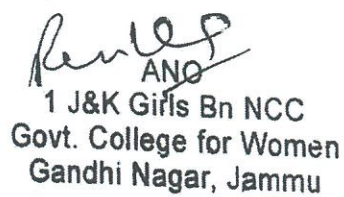 ANO
1 J&K Girls Bn NCC
Govt. College for Women
Gandhi Nagar, Jammu